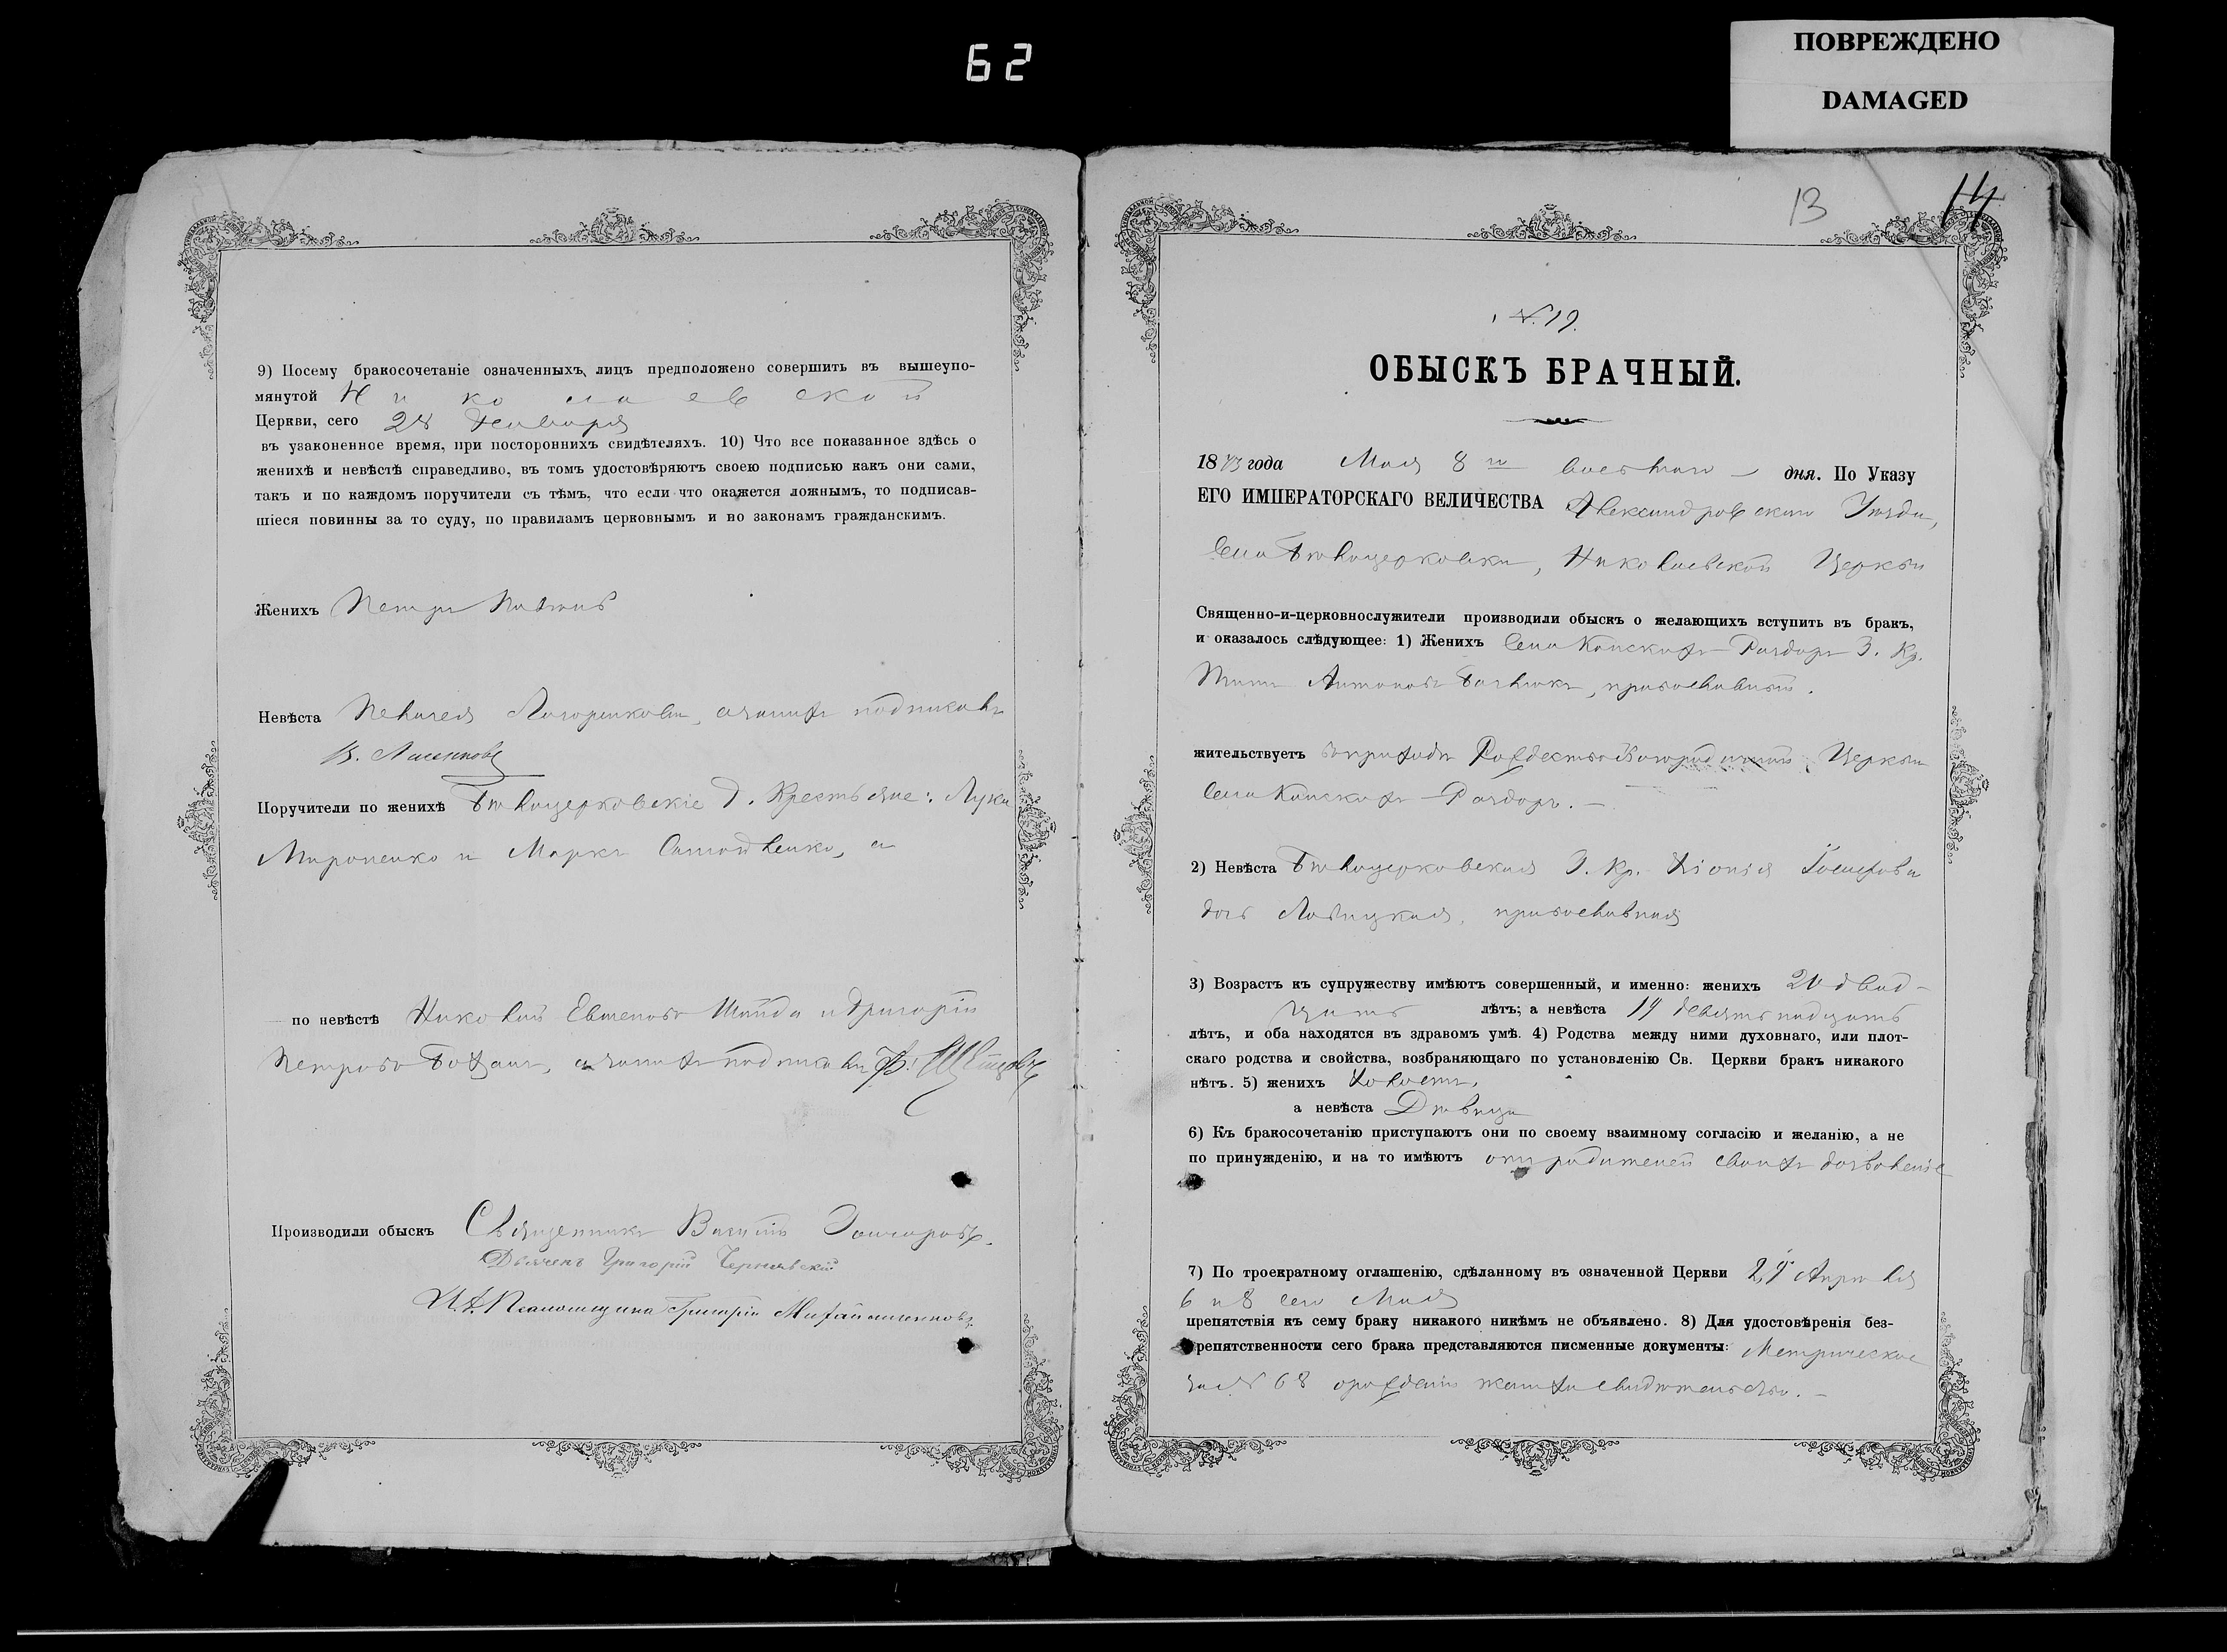 62
ПОВРЕЖДЕНО
DAMAGED
9) Посему бракосочетаніе означенныхъ лицъ предположено совершить въ вышеупо-
мянутой Николаевской
Церкви, сего 28 Января
въ узаконенное время, при постороннихъ свидѣтеляхъ. 10) Что все показанное здѣсь о
женихѣ и невѣстѣ справедливо, въ томъ удостовѣряютъ своею подписью какъ они сами,
такъ и по каждомъ поручители съ тѣмъ, что если что окажется ложнымъ, то подписав-
шіеся повинны за то суду, по правиламъ церковнымъ и по законамъ гражданскимъ.
Женихъ Петръ
Невѣста Пелагея а за нихъ подписалъ
В.
Поручители по женихѣ Бѣлоцерковскіе Крестьяне: Лука
Мироненко и Маркъ а
по невѣстѣ Николай Евменовъ Шинда и Григорій
Петровъ а за нихъ подписалъ
Производили обыскъ Священникъ
Дьячекъ Григорій Чернявскій
И. д. Псаломщика Григорій Михайличенковъ
13
14
№. 19.
ОБЫСКЪ БРАЧНЫЙ.
1873 года Мая 8 го восьмаго дня. По Указу
ЕГО ИМПЕРАТОРСКАГО ВЕЛИЧЕСТВА Александровскаго Уѣзда,
Села Бѣлоцерковки, Николаевской Церкви
Священно-и-церковнослужители производили обыскъ о желающихъ вступить въ бракъ,
и оказалось слѣдующее: 1) Женихъ Села Конскихъ-Раздоръ Кр.
Антоновъ православный.
жительствуетъ въ приходѣ Рождество-Богородичной Церкви
Села Конскихъ-Раздоръ.
2) Невѣста Бѣлоцерковская Кр. Хіонія Іосифова
дочь православная
3) Возрастъ къ супружеству имѣютъ совершенный, и именно: женихъ 20 двад-
цать лѣтъ; а невѣста 19 девятнадцать
лѣтъ, и оба находятся въ здравомъ умѣ. 4) Родства между ними духовнаго, или плот-
скаго родства и свойства, возбраняющаго по установленію Св. Церкви бракъ никакого
нѣтъ. 5) женихъ Холостъ,
а невѣста Дѣвица
6) Къ бракосочетанію приступаютъ они по своему взаимному согласію и желанію, а не
по принужденію, и на то имѣютъ отъ родителей своихъ дозволеніе
7) По троекратному оглашенію, сдѣланному въ означенной Церкви 29 Апрѣля
6 и 8 сего Мая
препятствія къ сему браку никакого никѣмъ не объявлено. 8) Для удостовѣренія без-
репятственности сего брака представляются писменные документы: Метрическое
за № 68 о рожденіи жениха свидѣтельство.